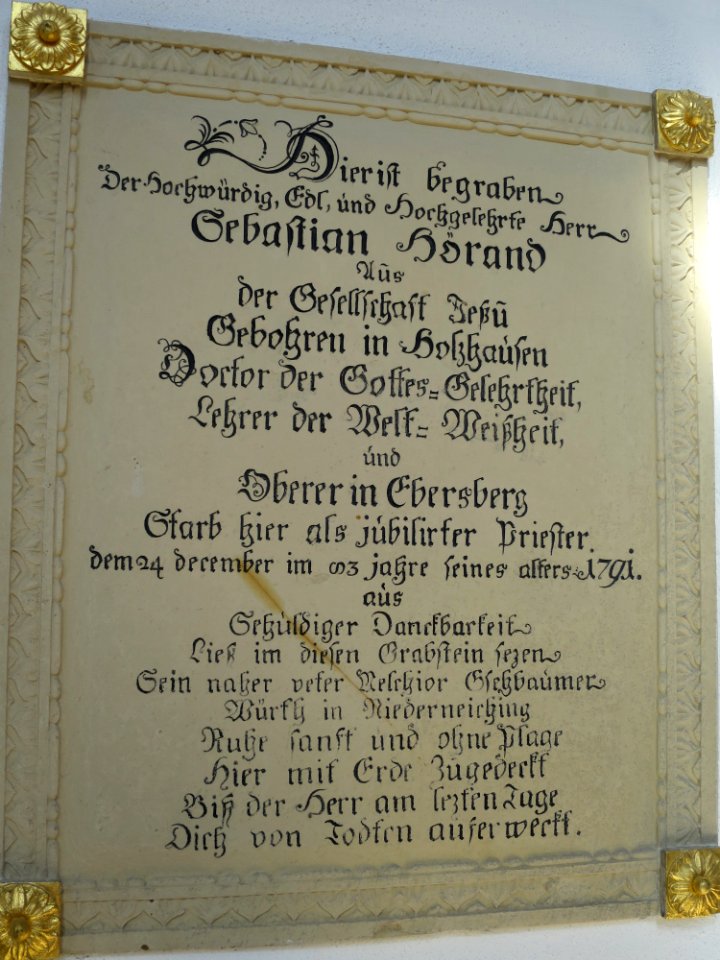 Hier ist begraben
Der Hochwürdig, Edl, und Hochgelehrte Herr
Sebastian Hörand
Aus
der Gesellschaft Jeßu
Gebohren in Holzhausen
Doctor der Gottes=Gelehrtheit,
Lehrer der Welt= Weißheit,
und
Oberer in Ebersberg
Starb hier als jubilirter Priester.
dem 24 december im 83 jahre seines alters 1791.
aus
Schuldiger Danckbarkeit
Ließ im diesen Grabstein sezen
Sein naher veter Melchior Gschbaumer
Würth in Niederneiching
Ruhe sanft und ohne Plage
Hier mit Erde Zugedeckt
Biß der Herr am lezten Tage
Dich von Todten auferweckt.